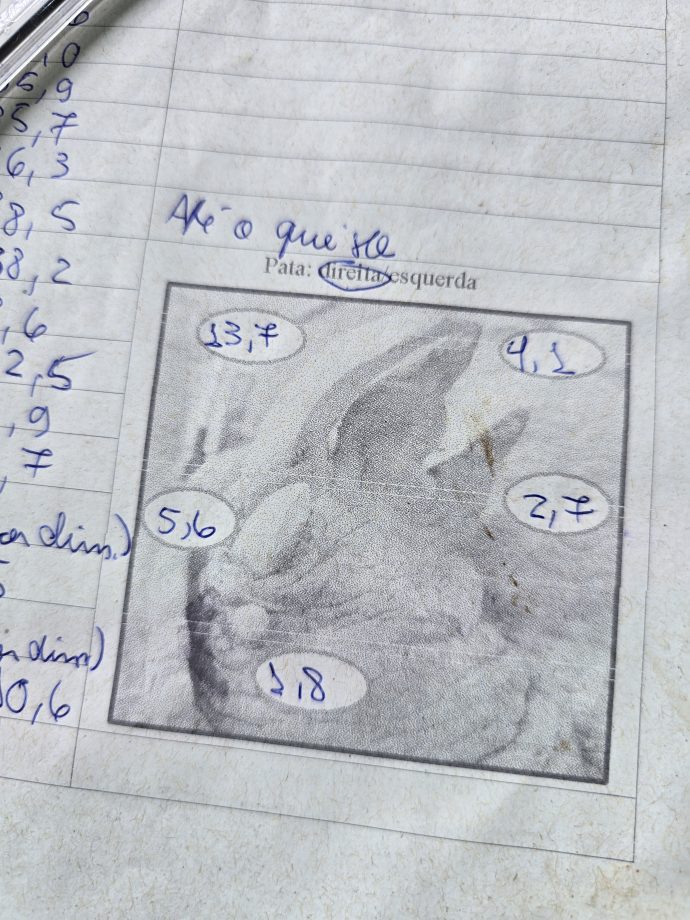 ,0
5,9
5,7
6,3
8,5
8,2
,6
2,5
,9
7
dim.)
dim)
0,6
Até o quisto
Pata: direita/esquerda
13,7
4,1
5,6
2,7
1,8